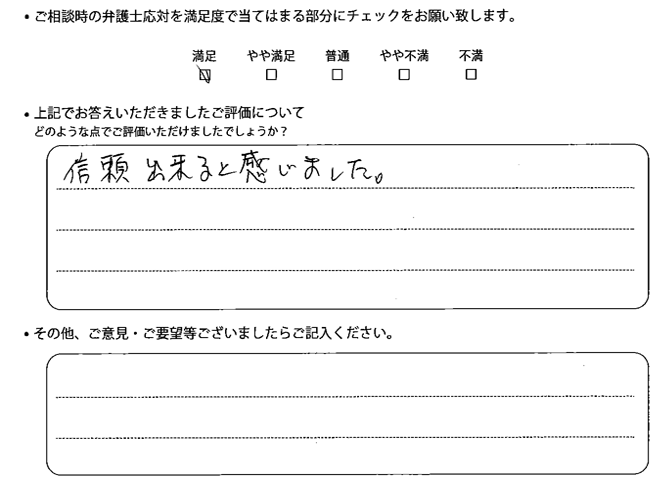 • ご相談時の弁護士応対を満足度で当てはまる部分にチェックをお願い致します。
満足 やや満足 普通 やや不満 不満
☑ □ □ □ □
• 上記でお答えいただきましたご評価について
どのような点でご評価いただけましたでしょうか？
信頼出来ると感じました。
• その他、ご意見・ご要望等ございましたらご記入ください。